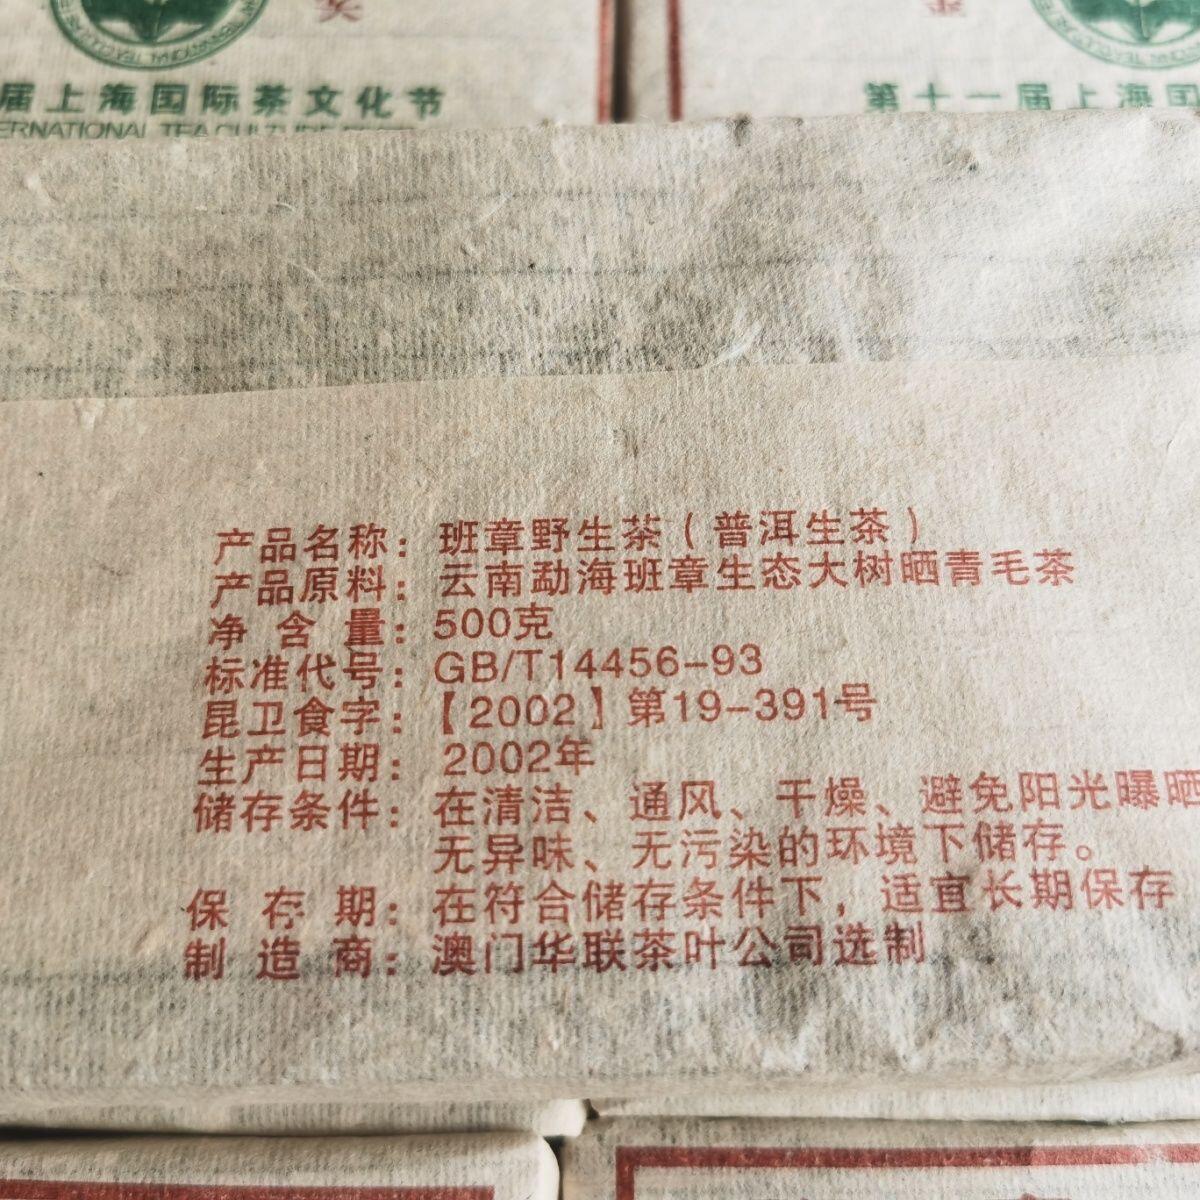 届上海国际茶文化节
第十一届上海国
ERNATIONAL TEA CULTURE
产品名称：班章野生茶（普洱生茶）
产品原料：云南勐海班章生态大树晒青毛茶
净含量：500克
标准代号：GB/T14456-93
昆卫食字：【2002】第19-391号
生产日期：2002年
储存条件：在清洁、通风、干燥、避免阳光曝晒
无异味、无污染的环境下储存。
保存期：在符合储存条件下，适宜长期保存
制造商：澳门华联茶叶公司选制